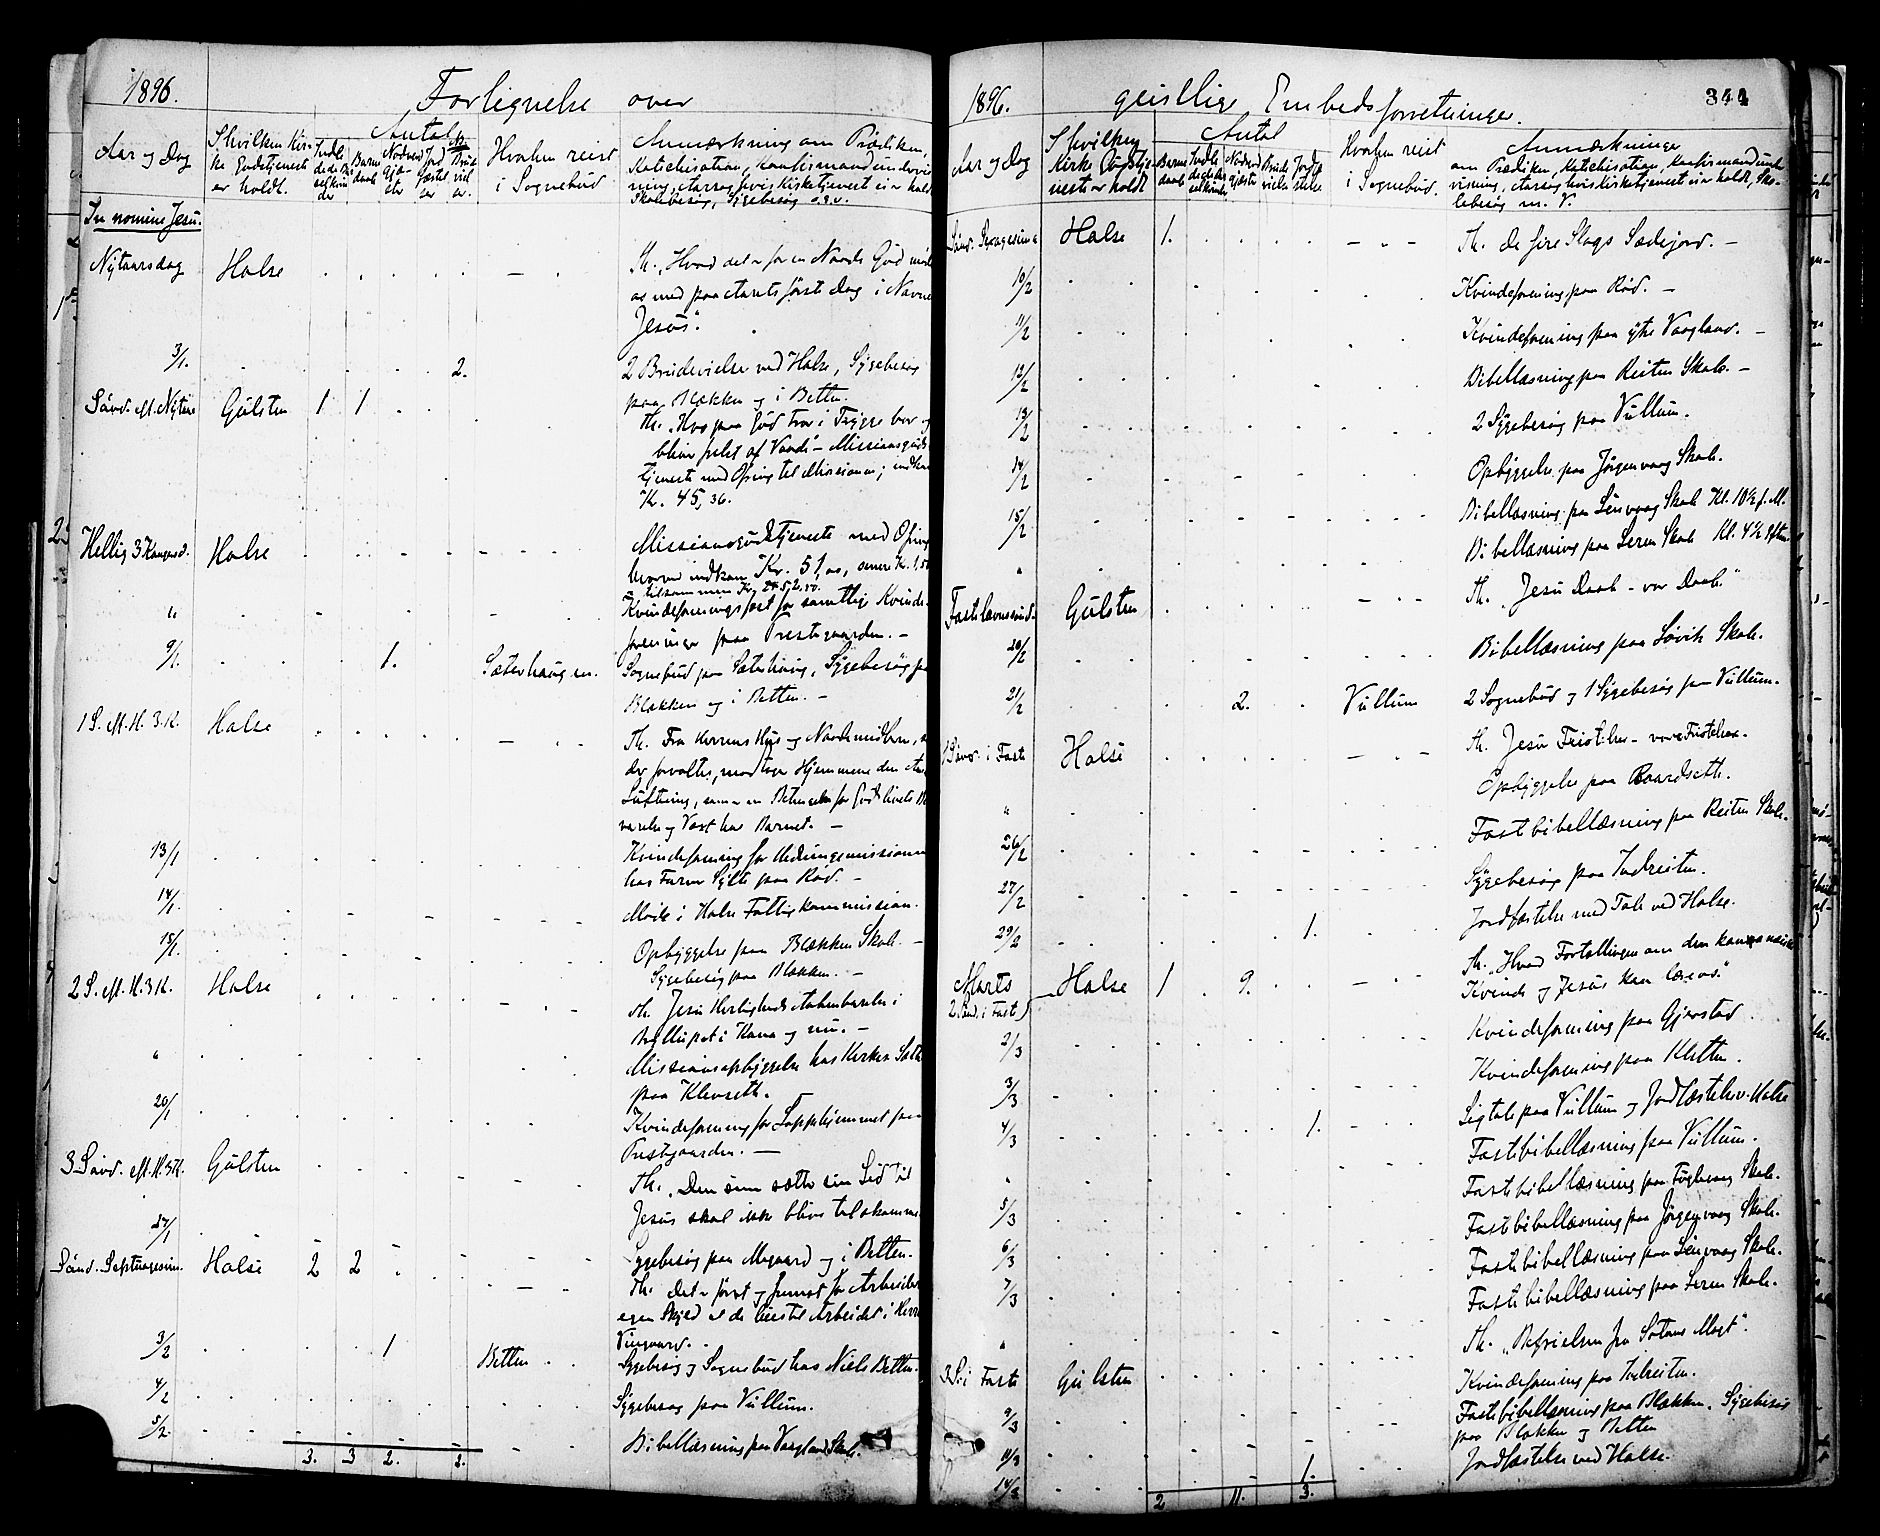 1896.
Forlignelse over
Aar og Dag
I hvilken Kir-
ke Gudstjeneste
er holdt.
Antal
Hvorhen reist
i Sognebud
Anmærkning om Prædiken,
Katchisation, Konfirmandundervis
ning, Aarsag hvis Kirketjeneste ei er holdt
Skolebesøg, Sygebesøg o.s.v.
In nomine Jesu.
Nytaarsdag Halse Th. „Hvad det er for en Naade Gud møder
os med paa Aarets første Dag i Navnet
Jesus".
3/1. 2. 2 Brudevielser ved Halse, Sygebesøg
paa Blækken og i Betten.
Sønd. e. Nytaar Gulsten 1 1 Th. „Hvo paa Gud tror i Trygge bor og
bliver frelst af Vaade" – Missionsguds
tjeneste med Ofring til Missionen; indkom
Kr. 45,36.
Hellig 3 Kongersd. Halse Missionsgudstjeneste med Ofring
hvorved indkom Kr. 51,00, senere Kr. 1,50
tilsammen Kr. 52.50.
" Kvindeforeningsfest for samtlige Kvinde-
foreninger paa Prestegaarden. –
9/1. 1. Sæterhaugen. Sognebud paa Sæterhaug, Sygebesøg paa
Blækken og i Betten. –
1 S. e. H. 3. K. Halse Th. Fra Herrens Hus og Naademidlerne, som
der forvaltes, modtager Hjemmene den
Luftning, som er en Betingelse for Gudslivets Be
varelse og Vext hos Barnet. –
13/1 Kvindeforening for Hedningemissionen
hos Farver Sylte paa Rød. –
14/1. Møde i Halse Fattigkommission.
15/1. Opbyggelse paa Blækken Skole. –
Sygebesøg paa Blækken. –
2 S. e. H. 3 K. Halse Th. Jesu Herligheds Aabenbarelse i
Brylluppet i Kana og nu. –
" Missionsopbyggelse hos Kirkes
paa Klevseth.
20/1 Kvindeforening for Lappehjemmet paa
Prestgaarden. –
3 Sønd. e. H. 3 K. Gulsten Th. „Den som sætter sin Lid til
Jesus skal ikke blive til skamme
27/1 Sygebesøg paa Megaard og i Betten.
Sønd. Septuagesim. Halse 2 2 Th. Det er først og fremst for Arbeiderens
egen Skyld at de leies til Arbeidet i Herrens
Vingaard.
3/2 1 Betten Sygebesøg og Sognebud hos Niels Betten.
4/2 Sygebesøg paa Vullum.
5/2 Bibellæsning paa Vaagland Skole.
3. 3 2. 2.
1896.
geistlige Embedsforretninger.
344
Aar og Dag
I hvilken
Kirke Gudstje-
neste er holdt
Antal
Hvorhen reist
i Sognebud.
Anmærkninger
om Prædiken, Katekisation, Konfirmandunder
visning, Aarsag hvis kirketjeneste ei er holdt, Sko-
lebesøg m. V.
Sønd. Sexagesima Halse 1. Th. De fire Slags Sædejord. –
10/2 Kvindeforening paa Rød. –
11/2 Kvindeforening paa ytre Vaagland. –
12/2 Bibellæsning paa Reiten Skole. –
13/2 2 Sygebesøg paa Vullum.
14/2 Opbyggelse paa Jørgenvaag Skole.
15/2 Bibellæsning paa Lenvaag Skole Kl. 10½ f. M.
" Bibellæsning paa Leren Skole Kl. 4½ Eftm
Fastelavnssønd. Gulsten Th. „Jesu Daab – vor Daab."
20/2 Bibellæsning paa Løvik Skole.
21/2 2. Vullum 2 Sognebud og 1 Sygebesøg paa Vullum.
1 Sønd. i Faste Halse Th. Jesu Fristelser – vore Fristelser.
" Opbyggelse paa Baardseth.
26/2 Fastebibellæsning paa Reiten Skole.
27/2 Sygebesøg paa Indreiten.
29/2 1. Jordfæstelse med Tale ved Halse.
Marts
2 Sønd. i Faste) Halse 1 9. Th. „Hvad Fortællingen om den kananæiske
Kvinde og Jesus kan lære os."
2/3 Kvindeforening paa Gjerstad.
3/3 Kvindeforening paa Kletten.
4/3 1. Ligtale paa Vullum og Jordfæstelse v. Halse
" Fastebibellæsning paa Vullum.
5/3 Fastebibellæsning paa Fuglevaag Skole.
6/3 Fastebibellæsning paa Jørgenvaag Skole.
7/3 Fastebibellæsning paa Lenvaag Skole.
" Fastebibellæsning paa Leren Skole.
3 S. i Faste Gulsten Th. „Befrielsen fra Satans Magt".
9/3 Kvindeforening paa Indreiten.
11/3 Fastebibellæsning paa Blækken. Sygebesøg
paa Blækken og Betten
14/3 1. Jordfæstelse ved Halse.
2 11. 3.